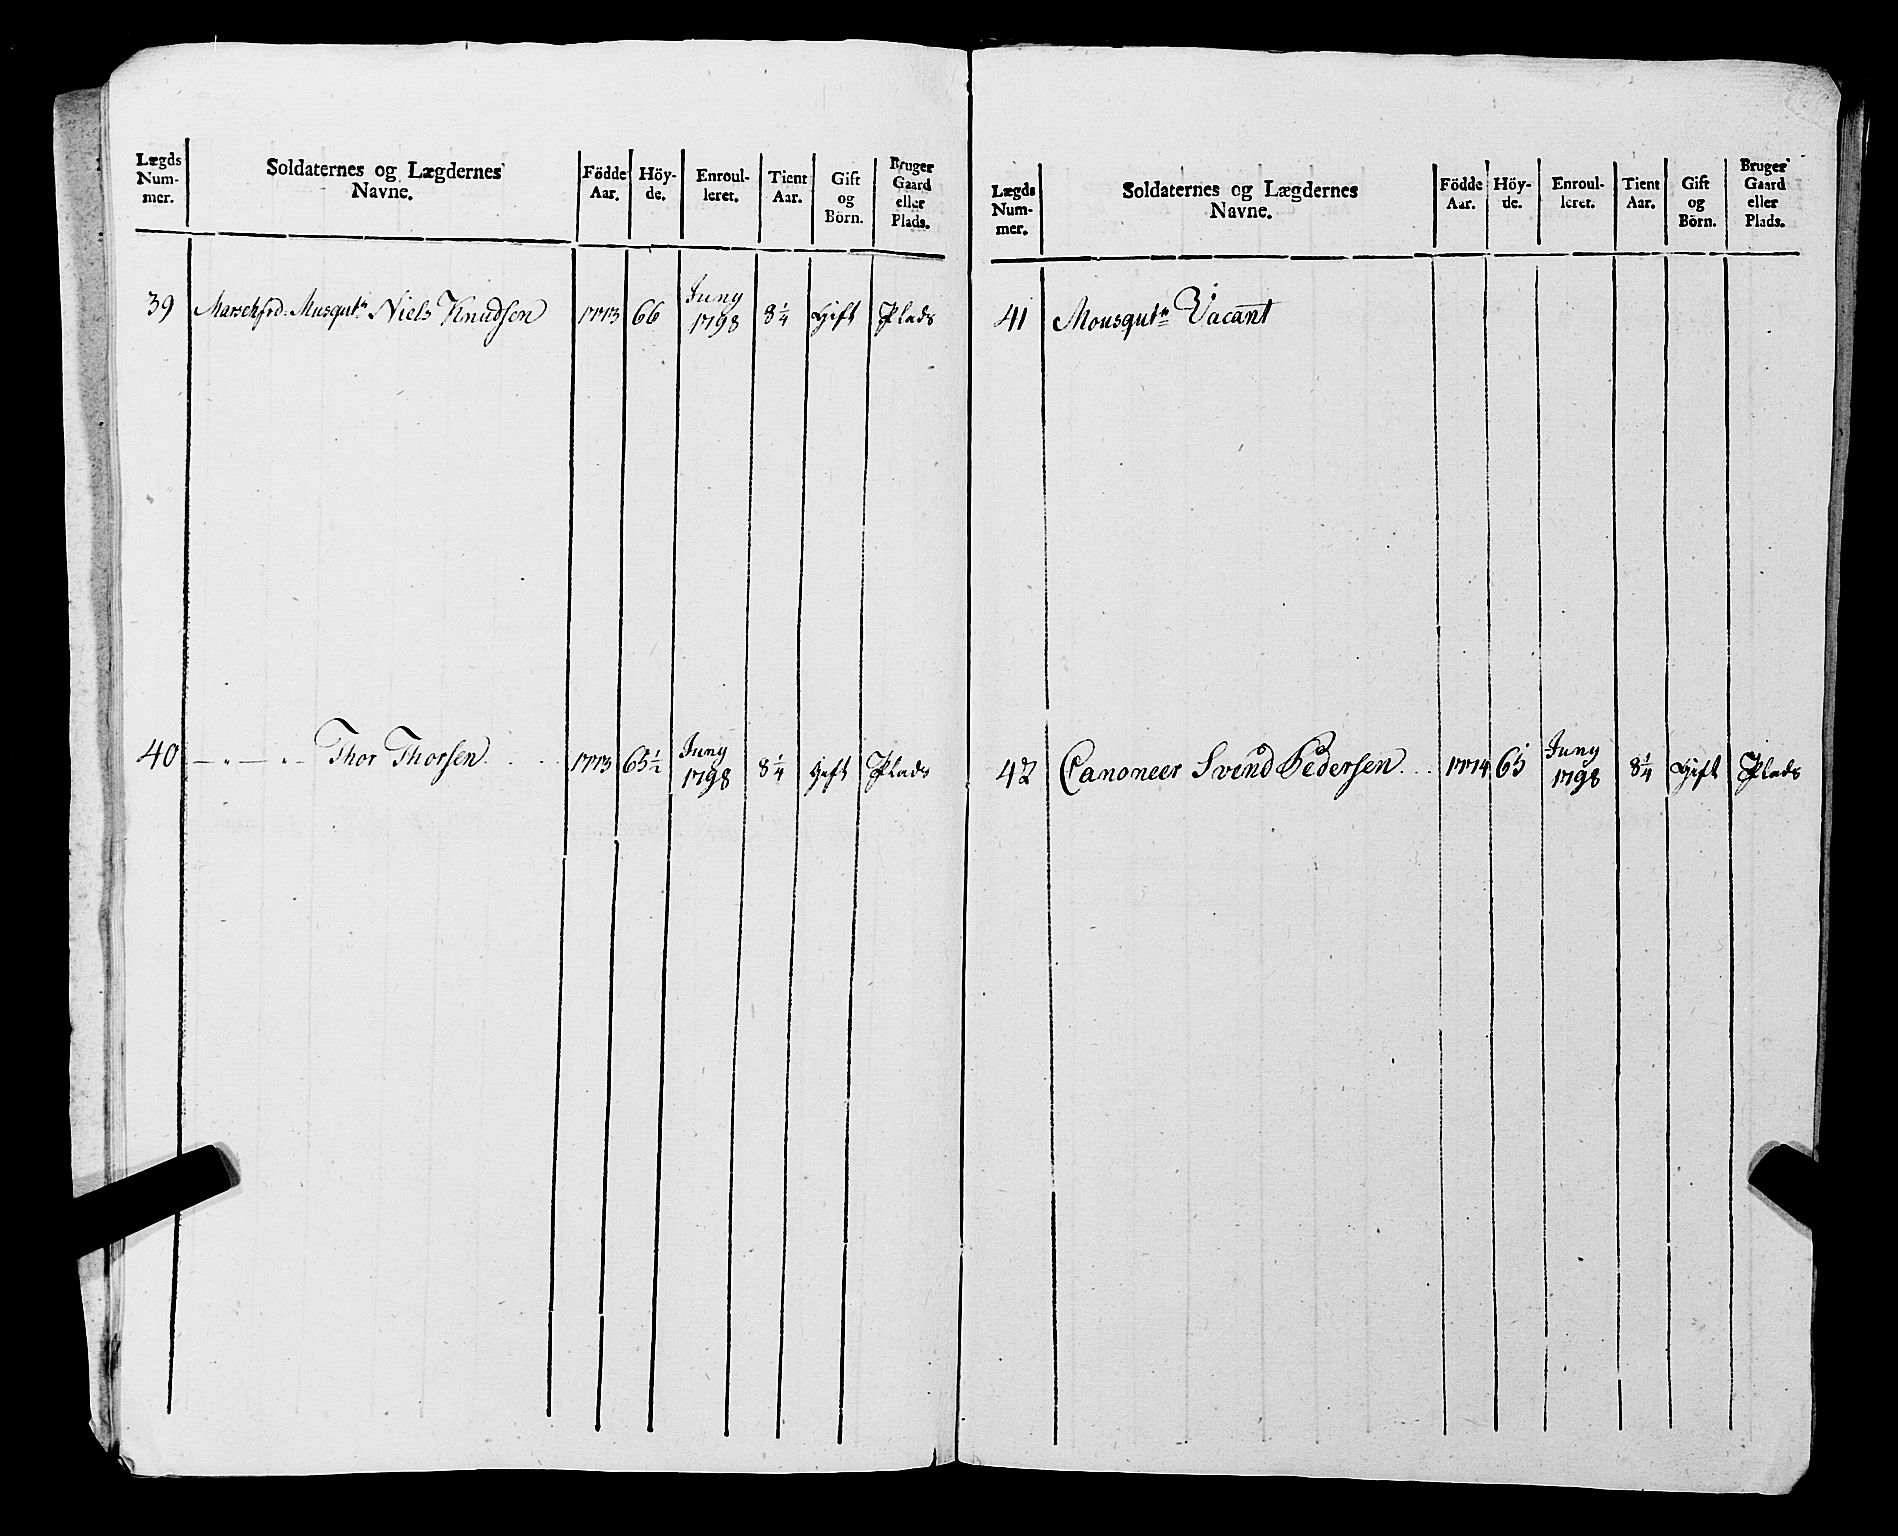 Lægds Num- mer. | Soldaternes og Lægdernes Navne. | Födde Aar. | Höy- de. | Enroul- leret. | Tient Aar. | Gift og Börn. | Bruger Gaard eller Plads.
39 | Marschfrd: Musqutr Niels Knudsen | 1773 | 66 | Juny 1798 | 8 1/4 | Gift | Plads
40 | — „ — „ — Thor Thorsen | 1773 | 65 1/2 | Juny 1798 | 8 1/4 | Gift | Plads
Lægds Num- mer. | Soldaternes og Lægdernes Navne. | Födde Aar. | Höy- de. | Enroul- leret. | Tient Aar. | Gift og Börn. | Bruger Gaard eller Plads.
41 | Mousqutr Vacant
42 | Canoneer Svend Pedersen | 1774 | 65 | Juny 1798 | 8 1/4 | Gift | Plads